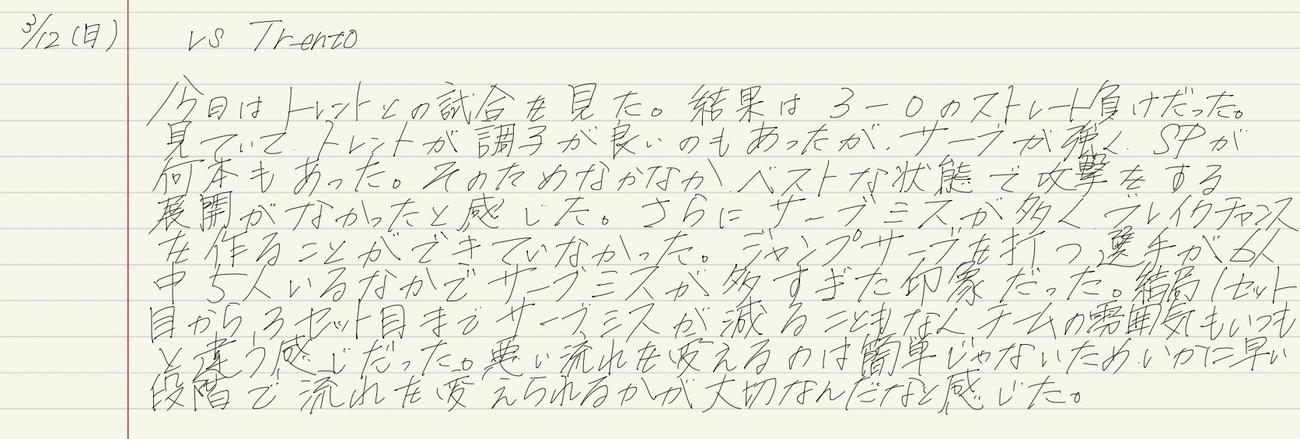 3/12(日) vs Trento
今日はトレントとの試合を見た。結果は3-0のストレート負けだった。
見ていて、トレントが調子が良いのもあったが、サーブが強く、SPが
何本もあった。そのためなかなか、ベストな状態で攻撃をする
展開がなかったと感じた。さらにサーブミスが多く、ブレイクチャンス
を作ることができていなかった。ジャンプサーブを打つ選手が6人
中5人いるなかでサーブミスが多すぎた印象だった。結局1セット
目から、3セット目までサーブミスが減ることもなく、チームの雰囲気もいつも
と違う感じだった。悪い流れを変えるのは簡単じゃないため、いかに早い
段階で流れを変えられるかが大切なんだなと感じた。